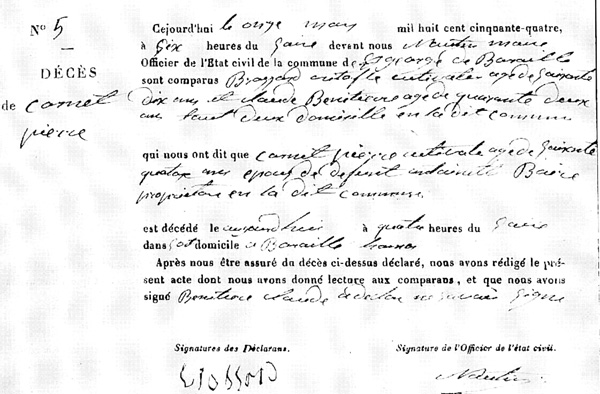 N° 5
DÉCÈS
de cornet
pierre
Cejourd'hui le onze mars mil huit cent cinquante-quatre,
à Six heures du Soire devant nous maire
Officier de l'État civil de la commune de St george de Baroille
sont comparus Brossard cultivateur age de Soixante
dix ans et claude age de quarante deux
ans tout deux domicille en la dit commune
qui nous ont dit que cornet pierre age de Soixante
quatorze ans epoux de defunt Baire
propriétaire en la dit commune
est décédé le aujourd'hui à quatre heures du Soire
dans Sont domicile a Baraille
Après nous être assuré du décès ci-dessus déclaré, nous avons rédigé le pré-
sent acte dont nous avons donné lecture aux comparans, et que nous avons
signé claude ne Savoir Signe
Signatures des Déclarans.
Signature de l'Officier de l'état civil.
Brossard